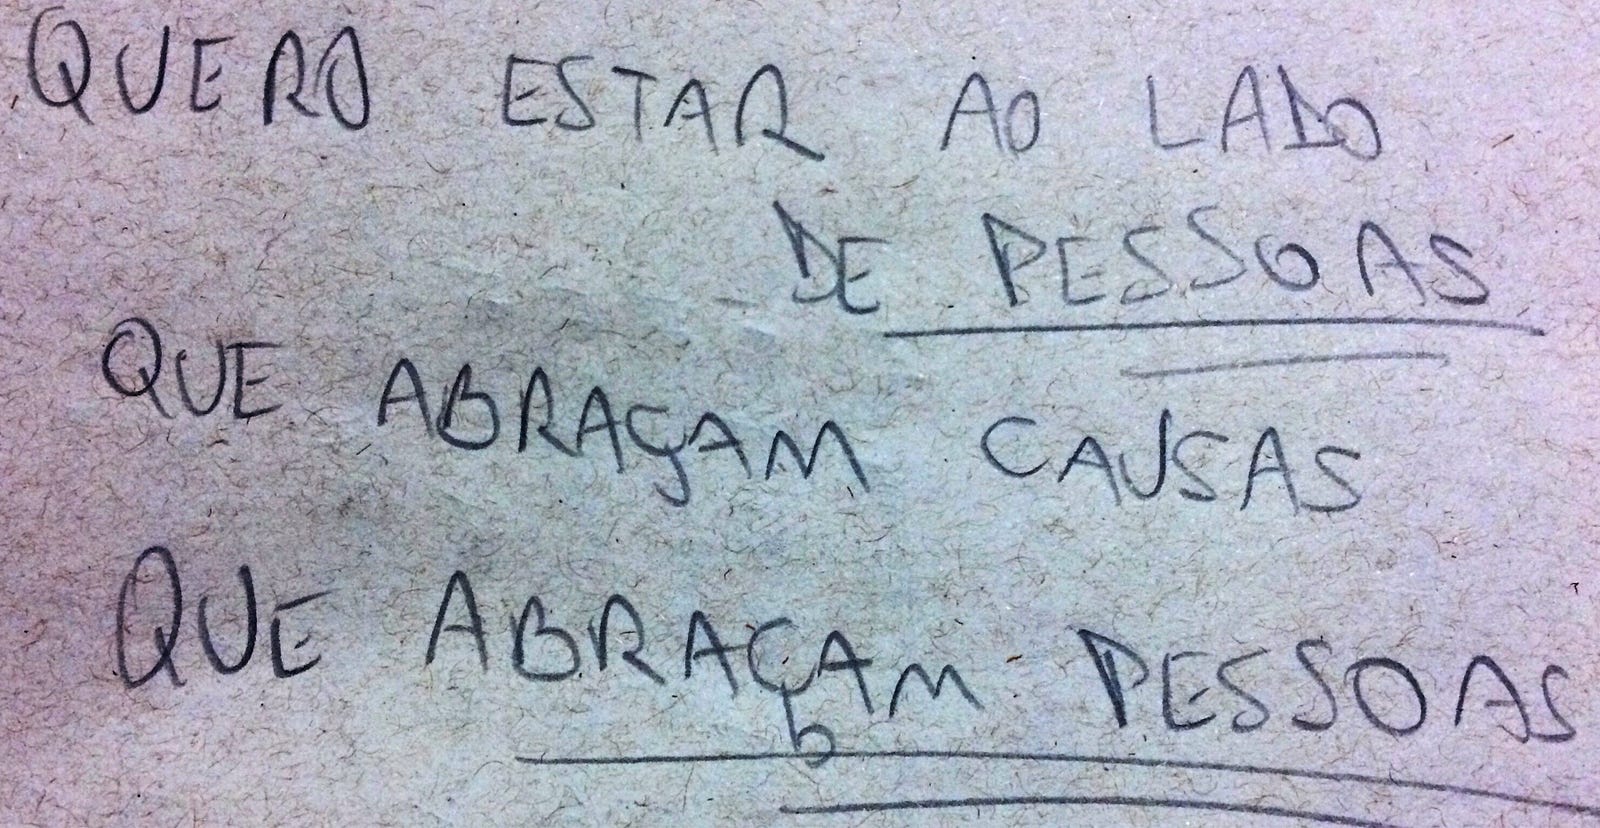 QUERO ESTAR AO LADO
DE PESSOAS
QUE ABRAÇAM CAUSAS
QUE ABRAÇAM PESSOAS